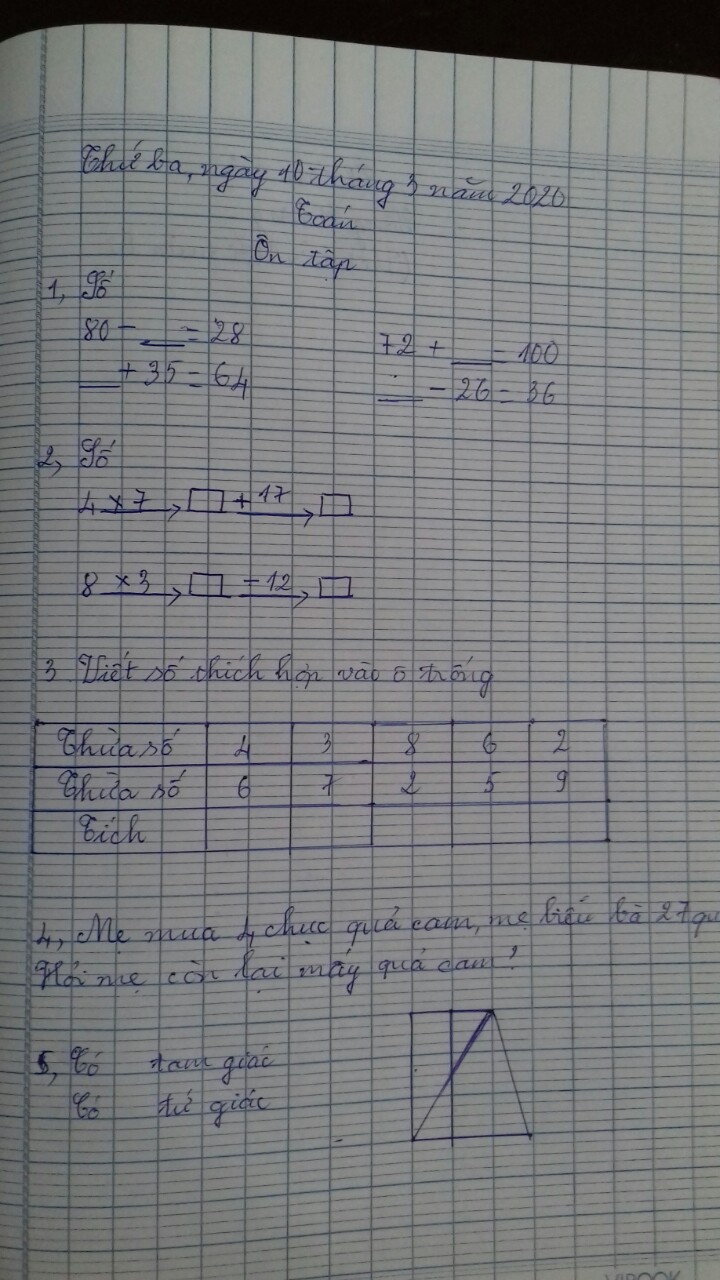 Thứ ba, ngày 10 tháng 3 năm 2020
Toán
Ôn tập
1, Số
80 - __ = 28    72 + __ = 100
__ + 35 = 64    __ - 26 = 36
2, Số
4 × 7 → □ + 17 → □
8 × 3 → □ - 12 → □
3 Viết số thích hợp vào ô trống
Thừa số 4 3 8 6 2
Thừa số 6 7 2 5 9
Tích
4, Mẹ mua 4 chục quả cam, mẹ biếu bà 27 qu
Hỏi mẹ còn lại mấy quả cam?
5, Có    tam giác
Có    tứ giác